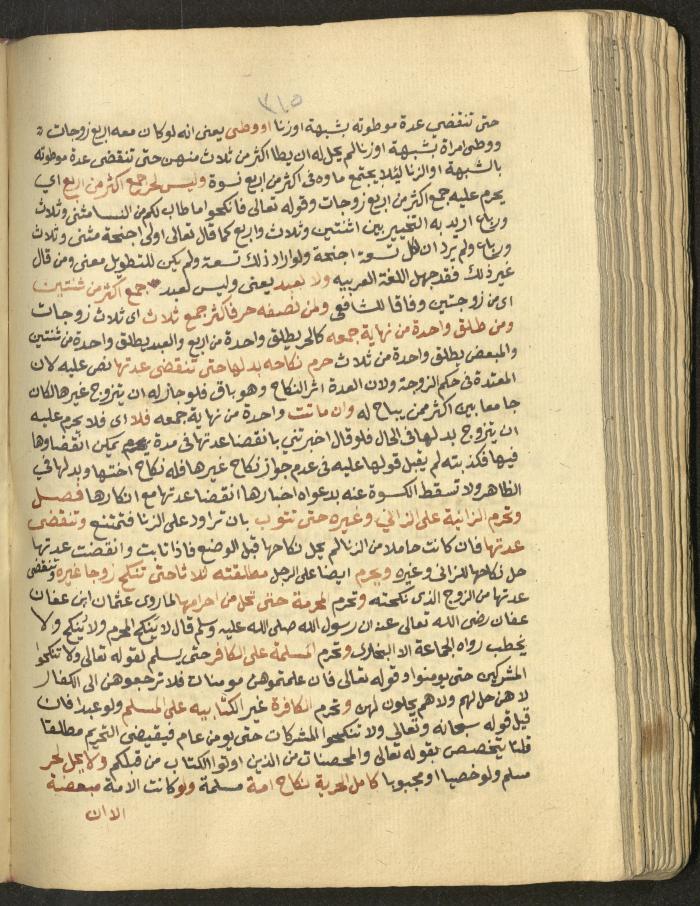 ٣١٥
حتى تنقضي عدة موطوته بشبهة اوزنا اووطى يعنى انه لوكان معه اربع زوجات
ووطى امراة بشبهة اوزنا لم يحل له ان يطا اكثر من ثلاث منهن حتى تنقضى عدة موطوته
بالشبهة او الزنا ليلا يجتمع ماوه فى اكثر من اربع نسوة وليس لحر جمع اكثر من اربع اي
يحرم عليه جمع اكثر من اربع زوجات وقوله تعالى فانكحوا ما طاب لكم من النسا مثنى وثلاث
ورباع اريد به التخيير بين اثنتين وثلاث واربع كما قال تعالى اولى اجنحة مثنى وثلاث
ورباع ولم يرد ان لكل تسعة اجنحة ولو اراد ذلك تسعة ولم يكن للتطويل معنى ومن قال
غير ذلك فقد جهل اللغة العربيه ولا لعبد يعنى وليس لعبد جمع اكثر من ثنتين
اى من زوجتين وفاقا للشافعى ومن نصفه حر فاكثر جمع ثلاث اى ثلاث زوجات
ومن طلق واحدة من نهاية جمعه كالحر يطلق واحدة من اربع والعبد يطلق واحدة من ثنتين
والمبعض يطلق واحدة من ثلاث حرم نكاحه بدلها حتى تنقضى عدتها نص عليه لان
المعتدة فى حكم الزوجة ولان العدة اثر النكاح وهو باق فلو جاز له ان يتزوج غيرها لكان
جامعا بين اكثر ممن يباح له وان ماتت واحدة من نهاية جمعه فلا اى فلا يحرم عليه
ان يتزوج بدلها فى الحال فلو قال اخبرتني بانقضا عدتها فى مدة يمكن انقضاوها
فيها فكذبته لم يقبل قولها عليه فى عدم جواز نكاح غيرها فله نكاح اختها وبدلها في
الظاهر ولا تسقط الكسوة عنه بدعواه اخبارها انقضا عدتها مع انكارها فصل
وتحرم الزانية على الزاني وغيره حتى تتوب بان تراود على الزنا فتمتنع وتنقضى
عدتها فان كانت حاملا من الزنا لم يحل نكاحها قبل الوضع فاذا تابت وانقضت عدتها
حل نكاحها للزانى وغيره ويحرم ايضا على الرجل مطلقته ثلاثا حتى تنكح زوجا غيره وتنقضى
عدتها من الزوج الذى نكحته وتحرم المحرمة حتى تحل من احرامها لما روى عثمان ابن عفان
عفان رضى الله تعالى عنه ان رسول الله صلى الله عليه وسلم قال لا ينكح المحرم ولا ينكح ولا
يخطب رواه الجماعة الا البخارى وتحرم المسلمة على الكافر حتى يسلم لقوله تعالى ولا تنكحوا
المشركين حتى يومنوا وقوله تعالى فان علمتموهن مومنات فلا ترجعوهن الى الكفار
لا هن حل لهم ولا هم يحلون لهن وتحرم الكافرة غير الكتابيه على المسلم ولو عبدا فان
قيل قوله سبحانه وتعالى ولا تنكحوا المشركات حتى يومن عام فيقيضى التحريم مطلقا
قلنا يتخصص بقوله تعالى والمحصنات من الذين اوتوا الكتاب من قبلكم ولا يحل لحر
مسلم ولو خصيا او مجبوبا كامل الحرية نكاح امة مسلمة ولو كانت الامة مبعضة
الا ان